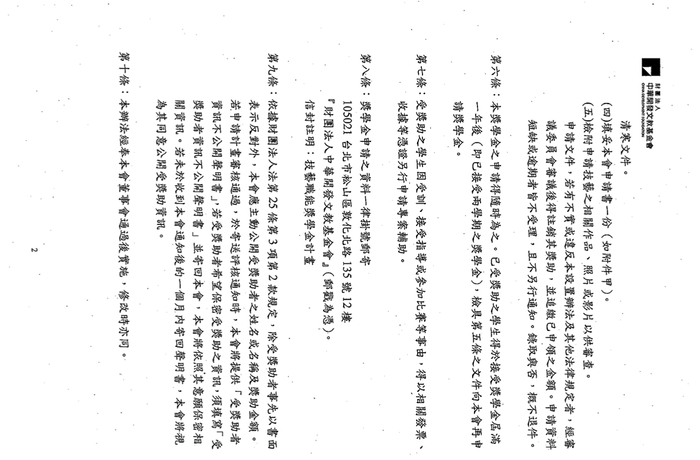 財團法人
中華開發文教基金會
清寒文件。
(四)填妥本會申請書一份(如附件甲)。
(五)檢附申請技藝之相關作品、照片或影片以供審查。
申請文件，若有不實或違反本設置辦法及其他法律規定者，經審
議委員會審議後得註銷其獎助，並追繳已申領之金額。申請資料
短缺或逾期者皆不受理，且不另行通知。錄取與否，概不退件。
第六條：本獎學金之申請得隨時為之。已受獎助之學生得於接受獎學金屆滿
一年後(即已接受兩學期之獎學金)，檢具第五條之文件向本會再申
請獎學金。
第七條：受獎助之學生因受訓、接受指導或參加比賽等事由，得以相關發票、
收據等憑證另行申請專案補助。
第八條：獎學金申請之資料一律掛號郵寄
105021 台北市松山區敦化北路 135 號 12 樓
『財團法人中華開發文教基金會』(郵戳為憑)。
信封註明：技藝職能獎學金計畫
第九條：依據財團法人法第 25 條第 3 項第 2 款規定，除受獎助者事先以書面
表示反對外，本會應主動公開受獎助者之姓名或名稱及獎助金額。
若申請計畫審核通過，於寄送評核通知時，本會將提供「受獎助者
資訊不公開聲明書」，若受獎助者希望保密受獎助之資訊，須填寫「受
獎助者資訊不公開聲明書」並寄回本會，本會將依照其意願保密相
關資訊。若未於收到本會通知後的一個月內寄回聲明書，本會將視
為其同意公開受獎助資訊。
第十條：本辦法經本會董事會通過後實施，修改時亦同。
2